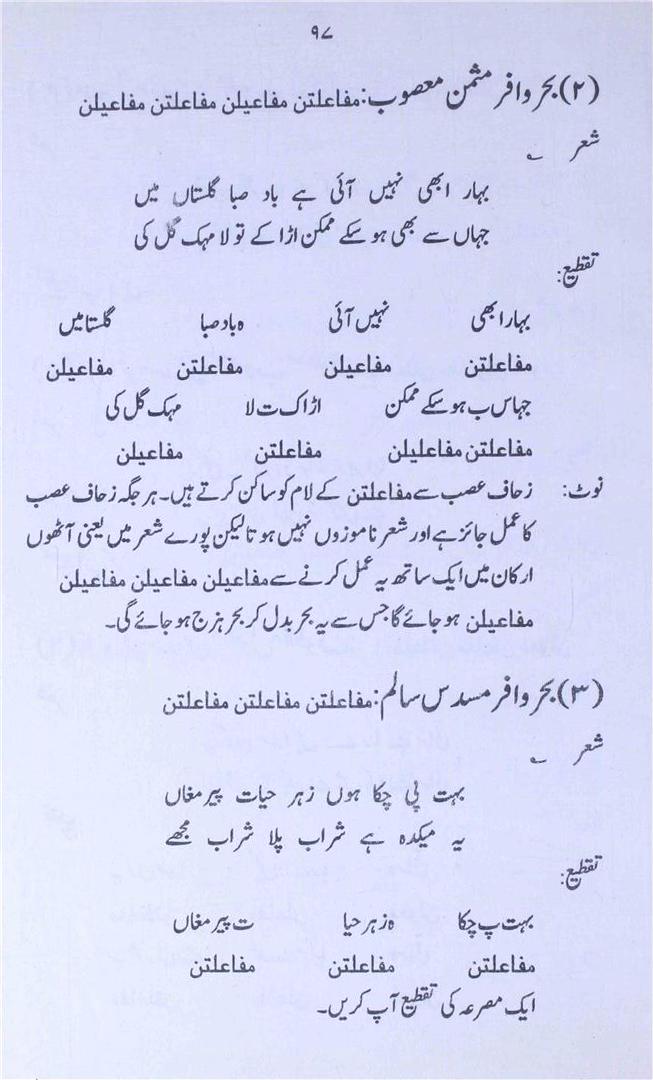 ۹۷
(۲) بحر وافر مثمن معصوب: مفاعلتن مفاعیلن مفاعلتن مفاعیلن
شعر ؎
بہار ابھی نہیں آئی ہے باد صبا گلستاں میں
جہاں سے بھی ہو سکے ممکن اڑا کے تو لا مہک گل کی
تقطیع:
بہارابھی نہیں آئی ہ باد صبا گلستا میں
مفاعلتن مفاعیلن مفاعلتن مفاعیلن
جہاس ب ہو سکے ممکن اڑا ک ت لا مہک گل کی
مفاعلتن مفاعلیلن مفاعلتن مفاعیلن
نوٹ: زحاف عصب سے مفاعلتن کے لام کو ساکن کرتے ہیں۔ ہر جگہ زحاف عصب
کا عمل جائز ہے اور شعر ناموزوں نہیں ہوتا لیکن پورے شعر میں یعنی آٹھوں
ارکان میں ایک ساتھ یہ عمل کرنے سے مفاعیلن مفاعیلن مفاعیلن
مفاعیلن ہو جائے گا جس سے یہ بحر بدل کر بحر ہزج ہو جائے گی۔
(۳) بحر وافر مسدس سالم: مفاعلتن مفاعلتن مفاعلتن
شعر ؎
بہت پی چکا ہوں زہر حیات پیر مغاں
یہ میکدہ ہے شراب پلا شراب مجھے
تقطیع:
بہت پ چکا ہ زہر حیا ت پیر مغاں
مفاعلتن مفاعلتن مفاعلتن
ایک مصرعہ کی تقطیع آپ کریں۔